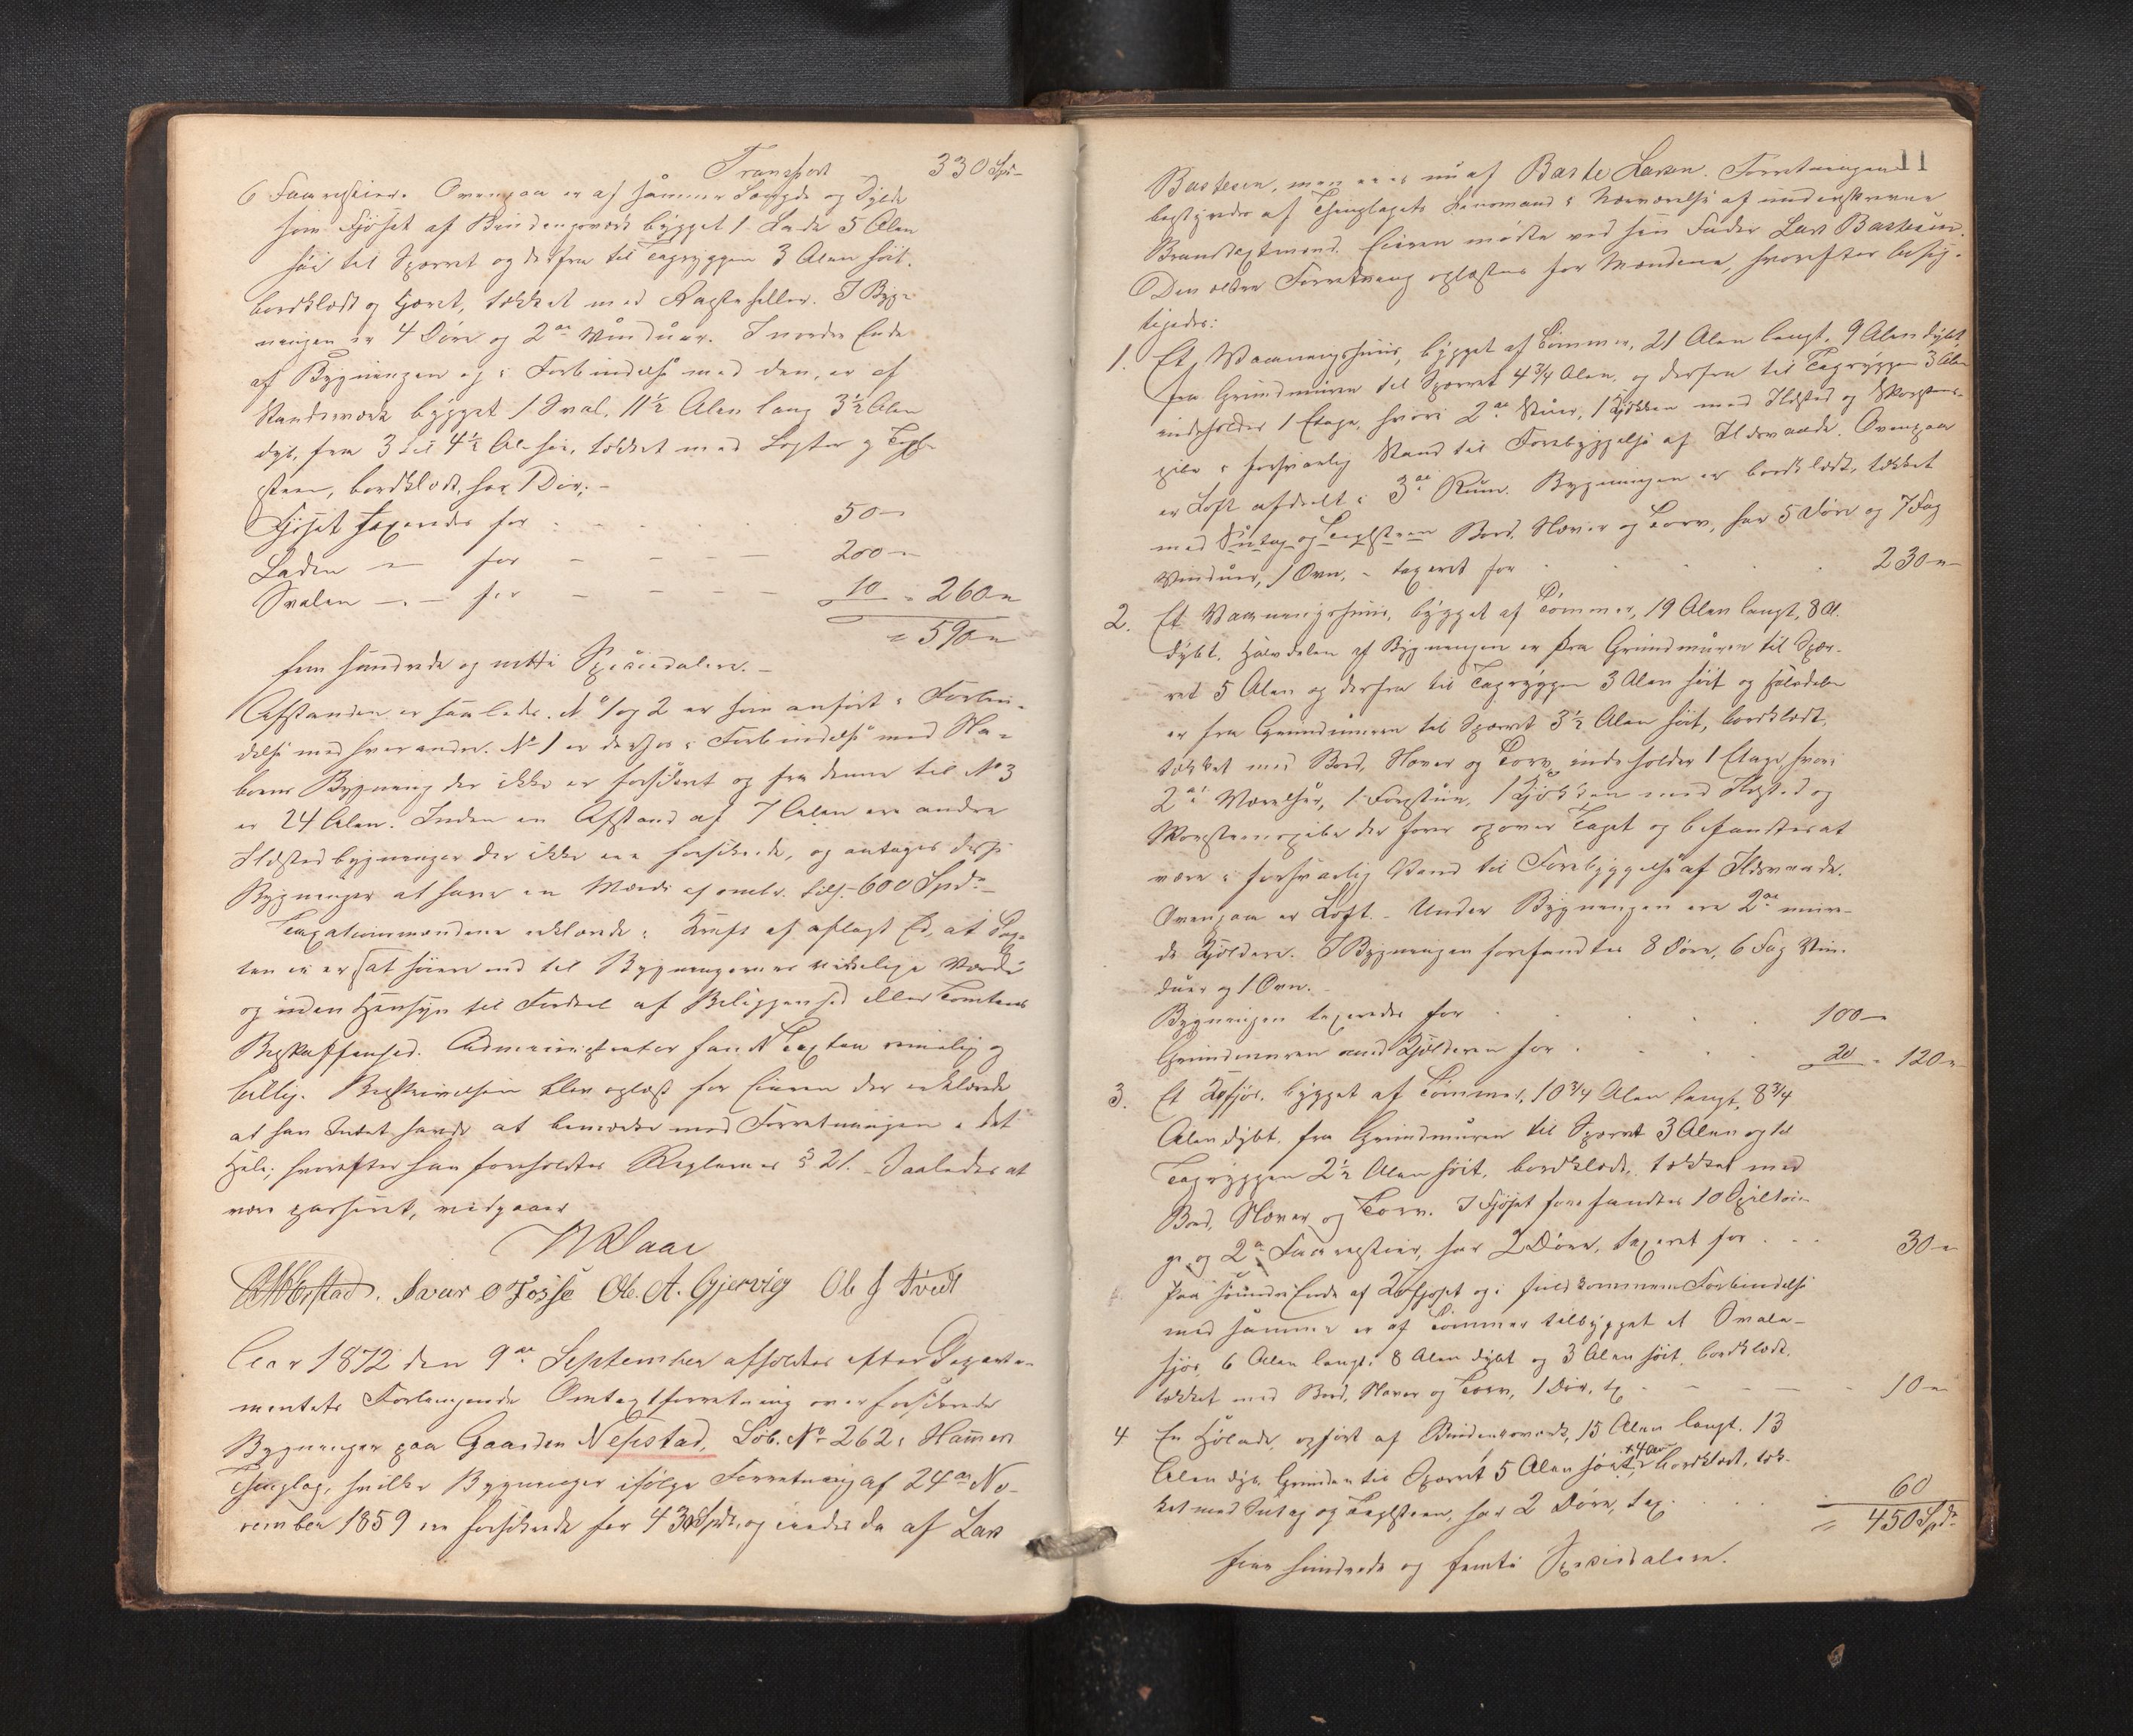 Transport 330 Spd
6 Faarestier. Ovenpaa er af samme Længde og Dybde
som Fjøset af Bindingsværk bygget 1 Lade 5 Alen
høi til Sparret og derfra til Tagryggen 3 Alen høit,
bordklædt og tjæret, tækket med Ragsteheller. I Byg-
ningen er 4 Døre og 2de Vinduer. I nordre Ende
af Bygningen og i Forbindelse med den, er af
Standsværk bygget 1 Sval, 11½ Alen lang 3½ Alen
dyb, fra 3 til 4½ Al. høi, tækket med Lægter og Tagl-
steen, bordklædt, har 1 Dør; -
Fjøset taxeredes for 50 -
Laden — for 200 -
Svalen — for 10 = 260 -
= 590 -
fem hundrede og nitti Speciedaler. -
Afstanden er saaledes. No 1 og 2 er som anført i Forbin-
delse med hverandre. No 1 er desfor i Forbindelse med Na-
boens Bygning der ikke er forsikret og fra denne til No 3
er 24 Alen. Inden en Afstand af 7 Alen ere andre
Ildstedbygninger der ikke ere forsikrede, og antages disse
Bygninger at have en Værdi af omtr. 600 Spd. -
Taxationsmændene erklærede i Kraft af aflagt Ed, at Tax-
ten ei er sat høiere end til Bygningernes virkelige Værdi
og uden Hensyn til Fordeel af Beliggenhed eller Tomtens
Beskaffenhed. Administrator fandt Taxten rimelig og
billig. Beskrivelsen blev oplæst for Eieren der erklærede
at han Intet havde at bemærke med Forretningen i det
Hele; hvorefter han foreholdtes Reglernes § 21. - Saaledes at
være passeret, vedgaaes
Ivar O Fosse Ole. A. Gjervig Ole J Tvedt
Aar 1872 den 9de September afholdtes efter Departe-
mentets Forlangende Omtaxtforretning over forsikrede
Bygninger paa Gaarden Nepstad, Løb. No 262 i Hamre
Thinglag, hvilke Bygninger ifølge Forretning af 24de No-
vember 1859 ere forsikrede for 430 Spd, og eiedes da af Lars
11
Bastesen, men eies nu af Baste Larsen. Forretningen
bestyredes af Thinglagets Lensmand i Nærværelse af underskrevne
Brandtaxtmænd. Eieren mødte ved sin Fader Lars Bastesen.
Den ældre Forretning oplæstes for Mændene, hvorefter besig-
tigedes:
1. Et Vaaningshuus, bygget af Tømmer, 21 Alen langt, 9 Alen dybt,
fra Grundmuren til Sparret 4¾ Alen, og derfra til Tagryggen 3 Alen
indeholder 1 Etage, hvori 2de Stuer, 1 Kjøkken med Ildsted og Skorsteens-
pibe i forsvarlig Stand til Forebyggelse af Ildsvaade. Ovenpaa
er Loft afdeelt i 3de Rum. Bygningen er bordklædt, tækket
med Sutag og Taglsteen Bord, Næver og Torv, har 5 Døre og 7 Fag
Vinduer, 1 Ovn, - taxeret for 230 -
2. Et Vaaningshuus, bygget af Tømmer, 19 Alen langt, 8 Al.
dybt. Halvdelen af Bygningen er fra Grundmuren til Spær-
ret 5 Alen og derfra til Tagryggen 3 Alen høit og Halvdelen
er fra Grundmuren til Sparret 3½ Alen høit, bordklædt,
tækket med Bord, Næver og Torv, indeholder 1 Etage hvori
2de Værelser, 1 Forstue, 1 Kjøkken med Ildsted og
Skorsteenspibe der fører op over Taget og befandtes at
være i forsvarlig Stand til Forebyggelse af Ildsvaade.
Ovenpaa er Loft. - Under Bygningen ere 2de mure-
de Kjeldere. I Bygningen forefandtes 8 Døre, 6 Fag Vin-
duer og 1 Ovn.
Bygningen taxeredes for 100 -
Grundmuren med Kjelderen for 20 = 120 -
3. Et Kofjøs, bygget af Tømmer, 10¾ Alen langt, 8¾
Alen dybt, fra Grundmuren til Sparret 3 Alen og til
Tagryggen 2½ Alen høit, bordklædt, tækket med
Bord, Næver og Torv. I Fjøset forefandtes 10 Spiltoi-
ge og 2de Faarestier, har 2 Døre, taxeret for 30 -
Paa søndre Ende af Kofjøset og i fuldkommen Forbindelse
med samme er af Tømmer tilbygget et Smale-
fjøs, 6 Alen langt, 8 Alen dybt og 3 Alen høit, bordklædt,
tækket med Bord, Næver og Torv, 1 Dør, tx 10 -
4 En Høelade, opført af Bindingsværk, 15 Alen langt, 13
Alen dyb, Grunden til Sparret 5 Alen høit, bordklædt, tæk-
ket med Sutag og Taglsteen, har 2 Døre, tax. 60
= 450 Spd.
fire hundrede og femti Speciedaler.